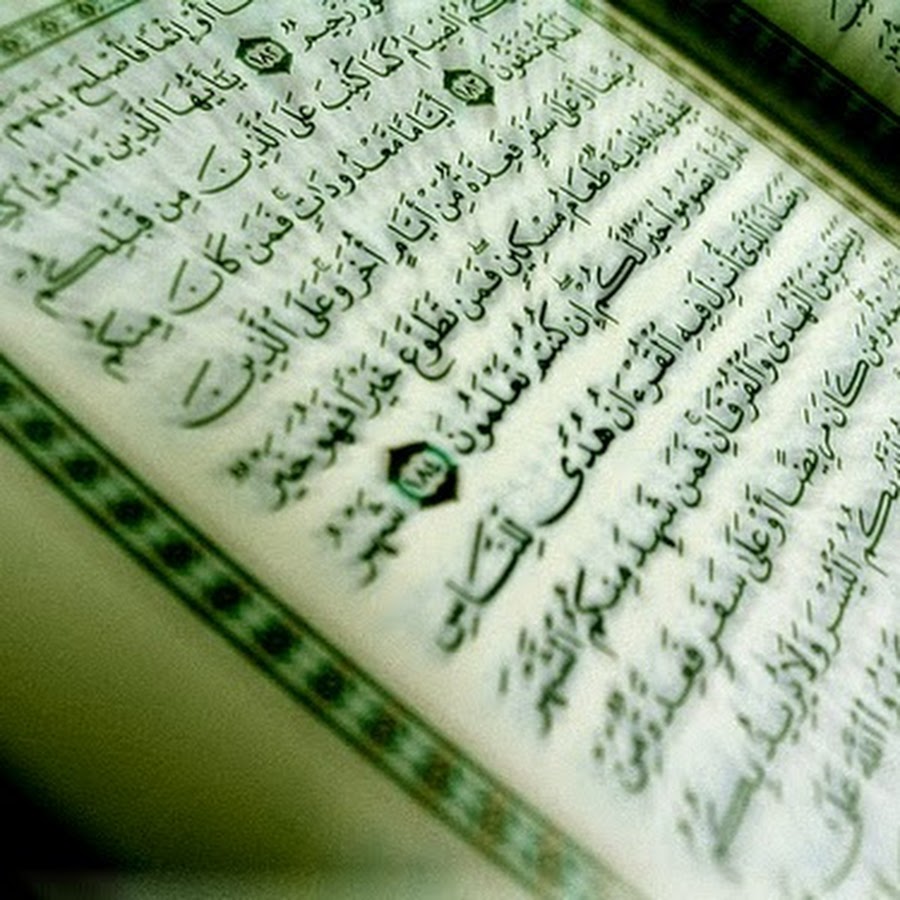 أَوْ إِثْمًا فَأَصْلَحَ بَيْنَهُمْ
رَّحِيمٌ ١٨٢ يَٰٓأَيُّهَا ٱلَّذِينَ ءَامَنُوا۟
ٱلصِّيَامُ كَمَا كُتِبَ عَلَى ٱلَّذِينَ مِن قَبْلِكُمْ
لَعَلَّكُمْ تَتَّقُونَ ١٨٣ أَيَّامًا مَّعْدُودَٰتٍ ۚ فَمَن كَانَ مِنكُم
مَّرِيضًا أَوْ عَلَىٰ سَفَرٍ فَعِدَّةٌ مِّنْ أَيَّامٍ أُخَرَ ۚ وَعَلَى ٱلَّذِينَ
يُطِيقُونَهُۥ فِدْيَةٌ طَعَامُ مِسْكِينٍ ۖ فَمَن تَطَوَّعَ خَيْرًا فَهُوَ خَيْرٌ
وَأَن تَصُومُوا۟ خَيْرٌ لَّكُمْ ۖ إِن كُنتُمْ تَعْلَمُونَ ١٨٤ شَهْرُ
رَمَضَانَ ٱلَّذِىٓ أُنزِلَ فِيهِ ٱلْقُرْءَانُ هُدًى لِّلنَّاسِ
وَبَيِّنَٰتٍ مِّنَ ٱلْهُدَىٰ وَٱلْفُرْقَانِ ۚ فَمَن شَهِدَ مِنكُمُ ٱلشَّهْرَ
وَمَن كَانَ مَرِيضًا أَوْ عَلَىٰ سَفَرٍ فَعِدَّةٌ مِّنْ
بِكُمُ ٱلْيُسْرَ وَلَا يُرِيدُ بِكُمُ
ٱللَّهَ عَلَىٰ